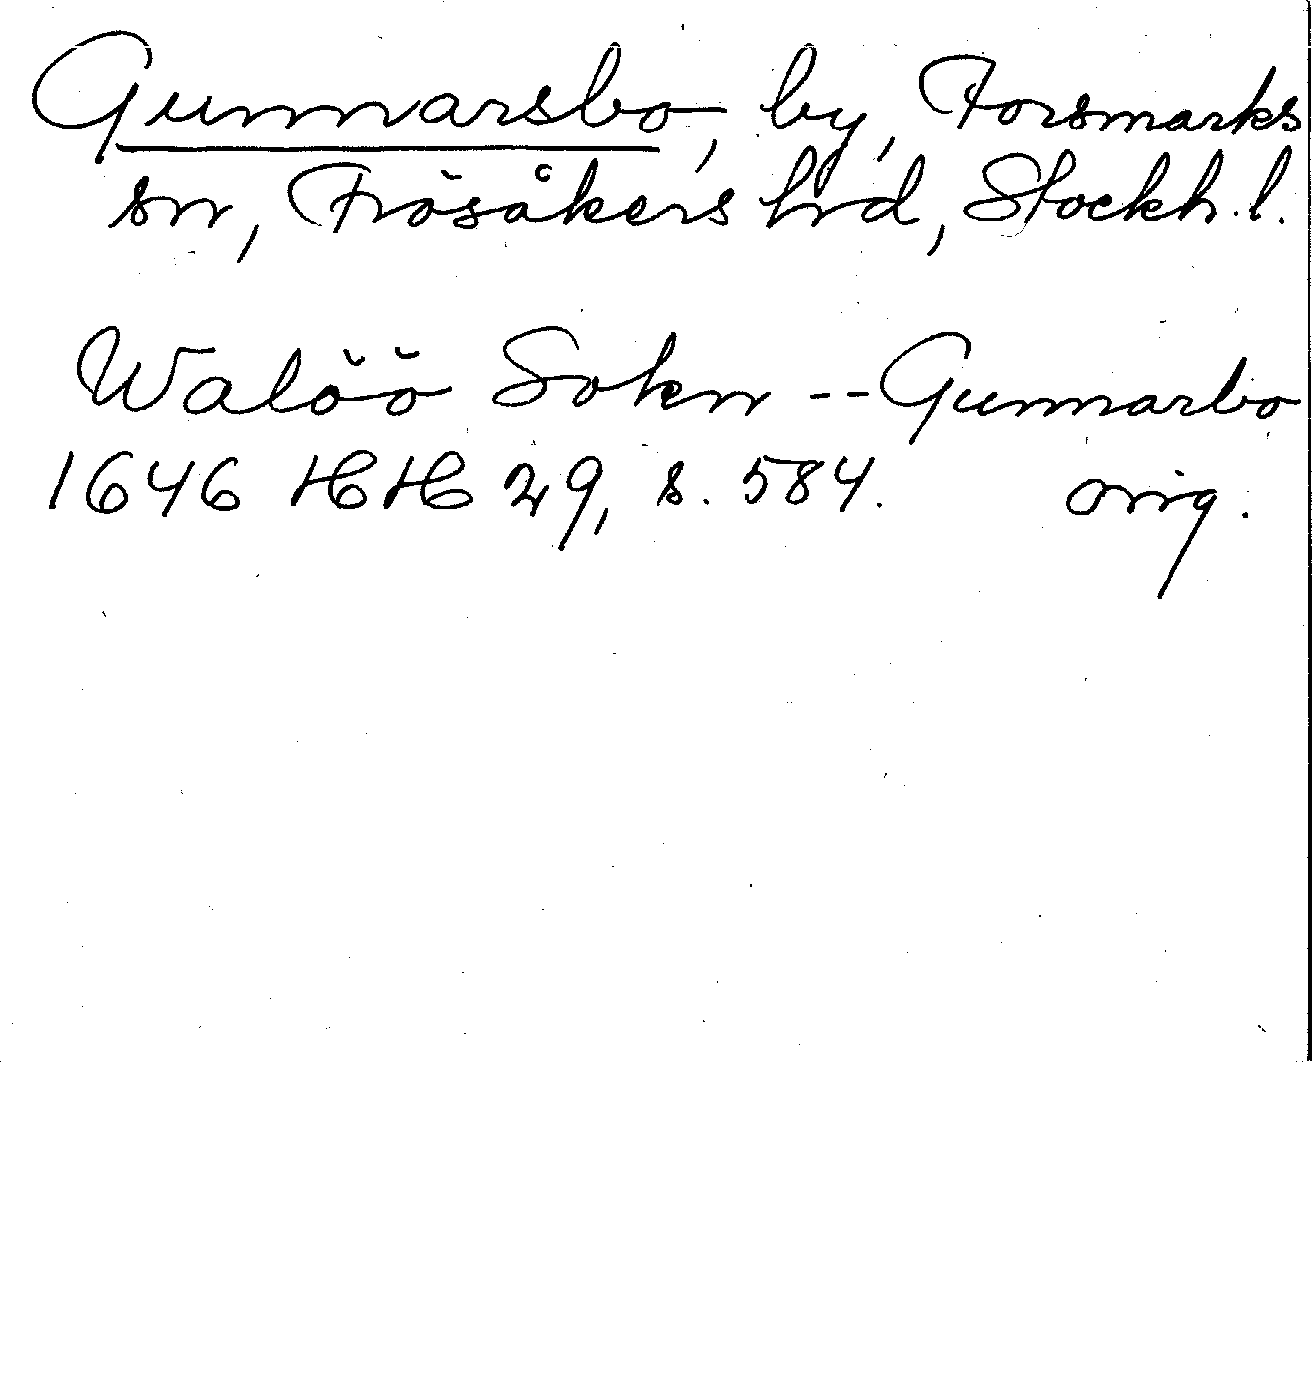 Gunnarsbo, by, Forsmarks
sn, Frösåkers hrd, Stockh. l.
Walöö Sokn -- Gunnarbo
1646 HH 29, s. 584. orig.